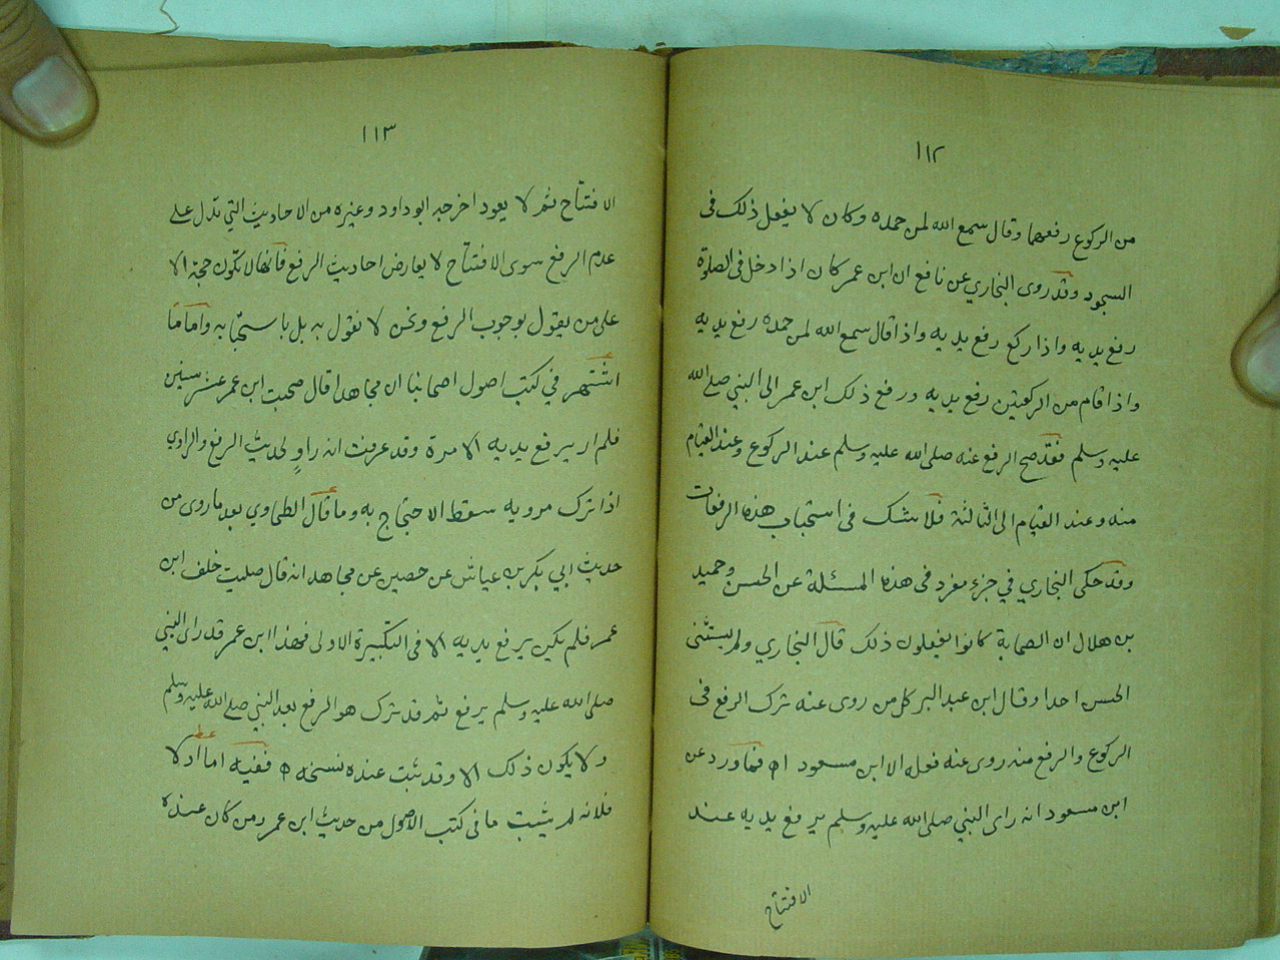 ١١٢
من الركوع رفعهما وقال سمع الله لمن حمده وكان لا يفعل ذلك فى
السجود وقد روى البخاري عن نافع ان ابن عمر كان اذا دخل فى الصلوة
رفع يديه واذا ركع رفع يديه واذا قال سمع الله لمن حمده رفع يديه
واذا قام من الركعتين رفع يديه ورفع ذلك ابن عمر الى النبي صلى الله
عليه وسلم فقد صح الرفع عنه صلى الله عليه وسلم عند الركوع وعند القيام
منه وعند القيام الى الثالثة فلا شك فى استحباب هذه الرفعات
وقد حكى البخاري في جزء مفرد فى هذه المسئلة عن الحسن وحميد
بن هلال ان الصحابة كانوا يفعلون ذلك قال البخاري ولم يستثنى
الحسن احدا وقال ابن عبد البر كل من روى عنه ترك الرفع فى
الركوع والرفع منه روى عنه فعله الا ابن مسعود اه فما ورد عن
ابن مسعود انه راى النبي صلى الله عليه وسلم يرفع يديه عند
الافتتاح
١١٣
الافتتاح ثم لا يعود اخرجه ابو داود وغيره من الاحاديث التي تدل على
عدم الرفع سوى الافتتاح لا يعارض احاديث الرفع فانها لا تكون حجة الا
على من يقول بوجوب الرفع ونحن لا نقول به بل باستحبابه واما ما
اشتهر في كتب اصول اصحابنا ان مجاهدا قال صحبت ابن عمر عشر سنين
فلم ار يرفع يديه الا مرة وقد عرفت انه راوٍ لحديث الرفع والراوي
اذا ترك مرويه سقط الاحتجاج به وما قال الطحاوي بعد ما روى من
حديث ابي بكر بن عياش عن حصين عن مجاهد انه قال صليت خلف ابن
عمر فلم يكن يرفع يديه الا فى التكبيرة الاولى فهذا ابن عمر قد راى النبي
صلى الله عليه وسلم يرفع ثم قد ترك هو الرفع بعد النبي صلى الله عليه وسلم
ولا يكون ذلك الا وقد ثبت عنده نسخه اه ففيه اما اولا
فلانه لم يثبت ما فى كتب الاصول من حديث ابن عمر ومن كان عنده